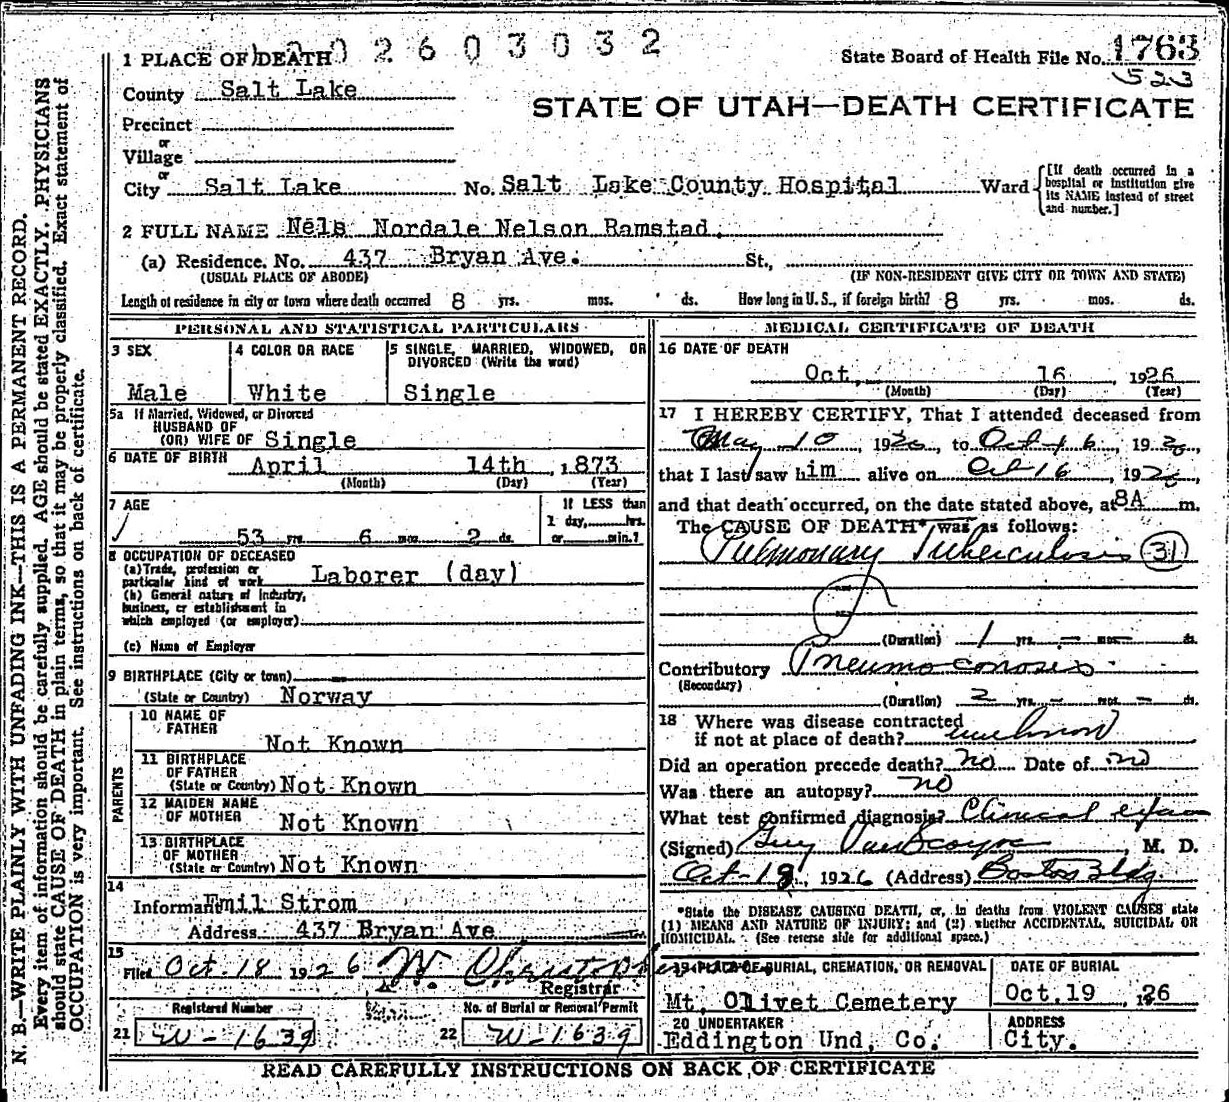 1 PLACE OF DEATH 0 2 6 0 3 0 3 2
State Board of Health File No. 1763
523
County Salt Lake
STATE OF UTAH—DEATH CERTIFICATE
Precinct
or
Village
or
City Salt Lake No. Salt Lake County Hospital Ward
[If death occurred in a hospital or institution give its NAME instead of street and number.]
2 FULL NAME Nels Nordale Nelson Ramstad.
(a) Residence, No. 437 Bryan Ave. St.,
(USUAL PLACE OF ABODE) (IF NON-RESIDENT GIVE CITY OR TOWN AND STATE)
Length of residence in city or town where death occurred 8 yrs. mos. ds. How long in U. S., if foreign birth? 8 yrs. mos. ds.
PERSONAL AND STATISTICAL PARTICULARS
3 SEX
Male
4 COLOR OR RACE
White
5 SINGLE, MARRIED, WIDOWED, OR
DIVORCED (Write the word)
Single
5a If Married, Widowed, or Divorced
HUSBAND OF
(OR) WIFE OF Single
6 DATE OF BIRTH April 14th, 1873
(Month) (Day) (Year)
7 AGE
53 yrs. 6 mos. 2 ds.
If LESS than
1 day, hrs.
or min.?
8 OCCUPATION OF DECEASED
(a) Trade, profession or
particular kind of work Laborer (day)
(b) General nature of Industry,
business, or establishment in
which employed (or employer)
(c) Name of Employer
9 BIRTHPLACE (City or town)
(State or Country) Norway
PARENTS
10 NAME OF
FATHER
Not Known
11 BIRTHPLACE
OF FATHER
(State or Country) Not Known
12 MAIDEN NAME
OF MOTHER Not Known
13 BIRTHPLACE
OF MOTHER
(State or Country) Not Known
14
Informant Emil Strom
Address 437 Bryan Ave
15
Filed Oct 18 1926 W. Christopherson
Registrar
Registered Number
21 W-1639
No. of Burial or Removal Permit
22 W-1639
MEDICAL CERTIFICATE OF DEATH
16 DATE OF DEATH
Oct, 16, 1926
(Month) (Day) (Year)
17 I HEREBY CERTIFY, That I attended deceased from
May 10, 1926, to Oct 16, 1926
that I last saw him alive on Oct 16, 1926,
and that death occurred, on the date stated above, at 8A m.
The CAUSE OF DEATH* was as follows:
Pulmonary Tuberculosis 31
(Duration) 1 yrs. – mos. – ds.
Contributory Pneumoconosis
(Secondary)
(Duration) 2 yrs. – mos. – ds.
18 Where was disease contracted
if not at place of death? unknown
Did an operation precede death? no Date of no
Was there an autopsy? no
What test confirmed diagnosis? Clinical exam
(Signed) Guy VanScoyoc, M. D.
Oct-18, 1926 (Address) Boston Bldg.
*State the DISEASE CAUSING DEATH, or, in deaths from VIOLENT CAUSES state
(1) MEANS AND NATURE OF INJURY; and (2) whether ACCIDENTAL, SUICIDAL OR
HOMICIDAL. (See reverse side for additional space.)
19 PLACE OF BURIAL, CREMATION, OR REMOVAL
Mt. Olivet Cemetery
DATE OF BURIAL
Oct.19, 1926
20 UNDERTAKER
Eddington Und. Co.
ADDRESS
City.
READ CAREFULLY INSTRUCTIONS ON BACK OF CERTIFICATE
N. B.—WRITE PLAINLY WITH UNFADING INK—THIS IS A PERMANENT RECORD.
Every item of information should be carefully supplied. AGE should be stated EXACTLY. PHYSICIANS
should state CAUSE OF DEATH in plain terms, so that it may be properly classified. Exact statement of
OCCUPATION is very important. See instructions on back of certificate.